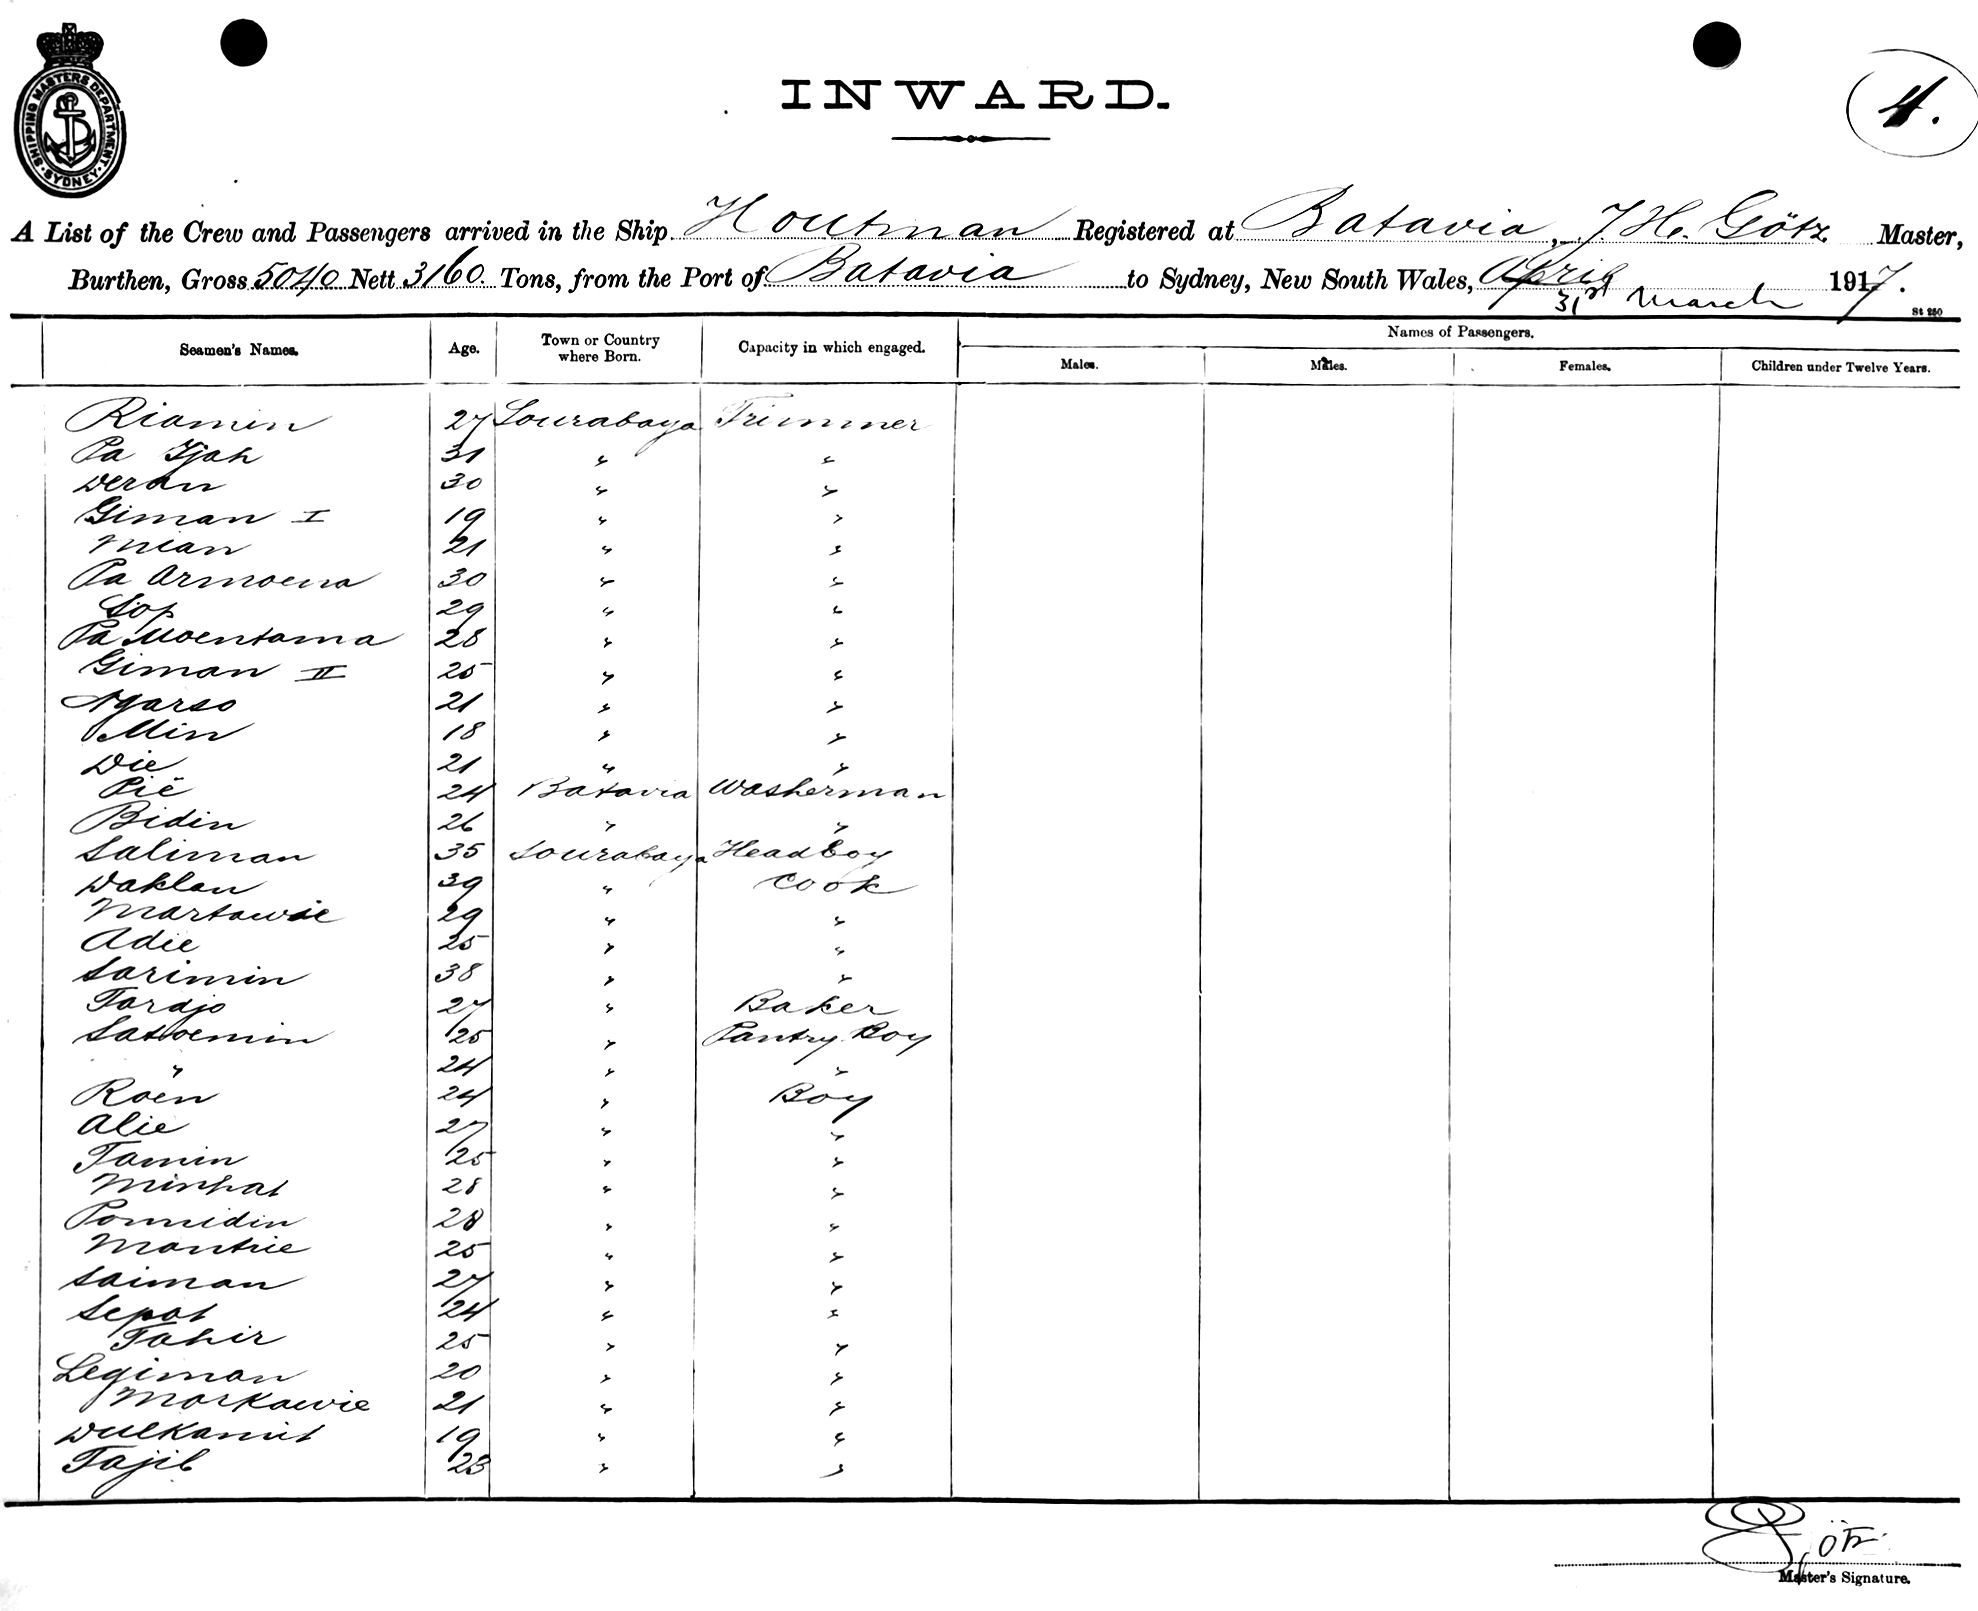 SHIPPING MASTERS DEPARTMENT SYDNEY
INWARD.
4.
A List of the Crew and Passengers arrived in the Ship Houtman Registered at Batavia, J. H. Götz Master,
Burthen, Gross 5040 Nett 3160. Tons, from the Port of Batavia to Sydney, New South Wales, April 1917.
31st March
St 250
Seamen's Names. Age. Town or Country where Born. Capacity in which engaged. Names of Passengers.
Males. Males. Females. Children under Twelve Years.
Riamin 27 Sourabaya Trimmer
Pa Tjah 31 " "
Deran 30 " "
Giman I 19 " "
Mian 21 " "
Pa Armoena 30 " "
Sop 29 " "
Pa Moentama 28 " "
Giman II 25 " "
Ngarso 21 " "
Min 18 " "
Die 21 " "
Pië 24 Batavia Washerman
Bidin 26 " "
Saliman 35 Sourabaya Headboy
Daklan 39 " Cook
Martawie 29 " "
Adie 25 " "
Sarimin 38 " "
Tardjo 27 " Baker
Satoemin 25 " Pantry Boy
" 24 " "
Roen 24 " Boy
Alie 27 " "
Tamin 25 " "
Minhat 28 " "
Ponnidin 28 " "
Mantrie 25 " "
Saiman 27 " "
Sepot 24 " "
Tahir 25 " "
Legiman 20 " "
Markawie 21 " "
Dulkamit 19 " "
Tajib 23 " "
Götz
Master's Signature.